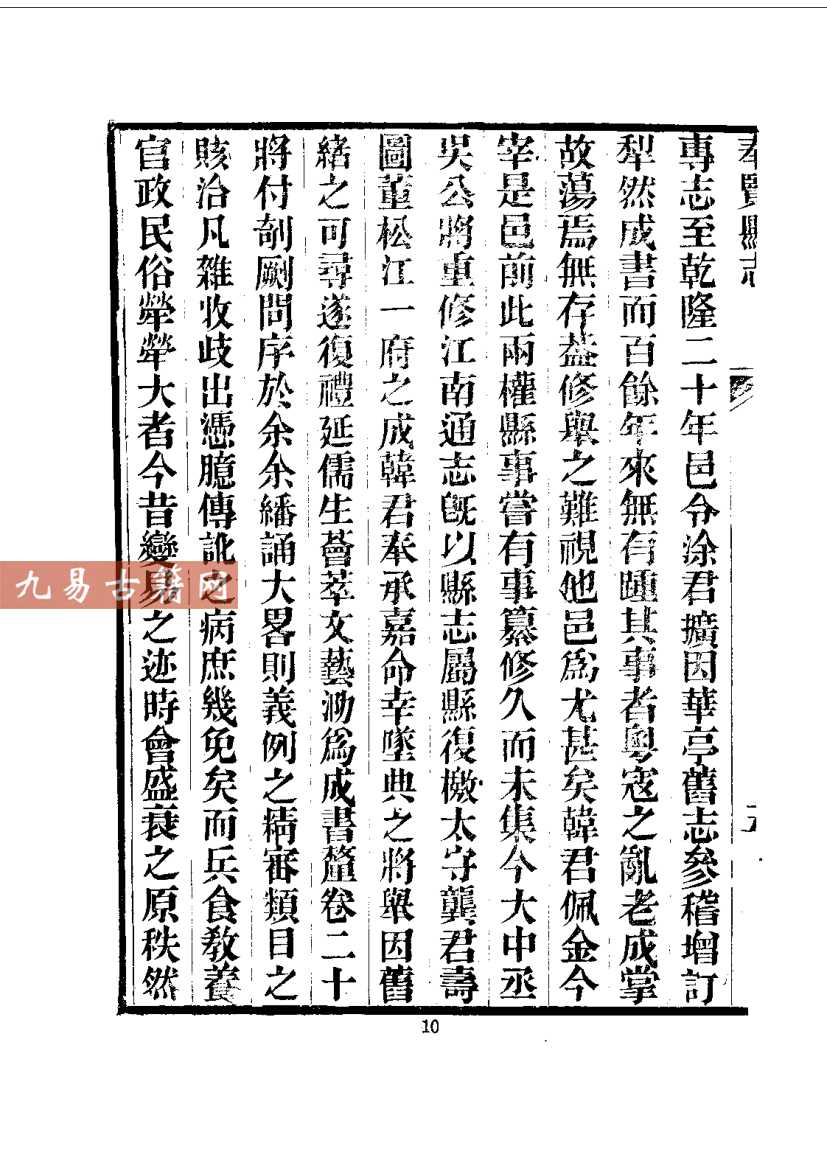 奉賢縣志
專志至乾隆二十年邑令涂君擴因華亭舊志參稽增訂
犁然成書而百餘年來無有踵其事者粵寇之亂老成掌
故蕩焉無存益修舉之難視他邑爲尤甚矣韓君佩金今
宰是邑前此兩權縣事嘗有事纂修久而未集今大中丞
吳公將重修江南通志旣以縣志屬縣復檄太守龔君壽
圖董松江一府之成韓君奉承嘉命幸墜典之將舉因舊
緒之可尋遂復禮延儒生薈萃文藝泐爲成書釐卷二十
將付剞劂問序於余余繙誦大畧則義例之精審類目之
賅洽凡雜收歧出憑臆傳訛之病庶幾免矣而兵食敎養
官政民俗犖犖大者今昔變易之迹時會盛衰之原秩然
九易古籍网
10